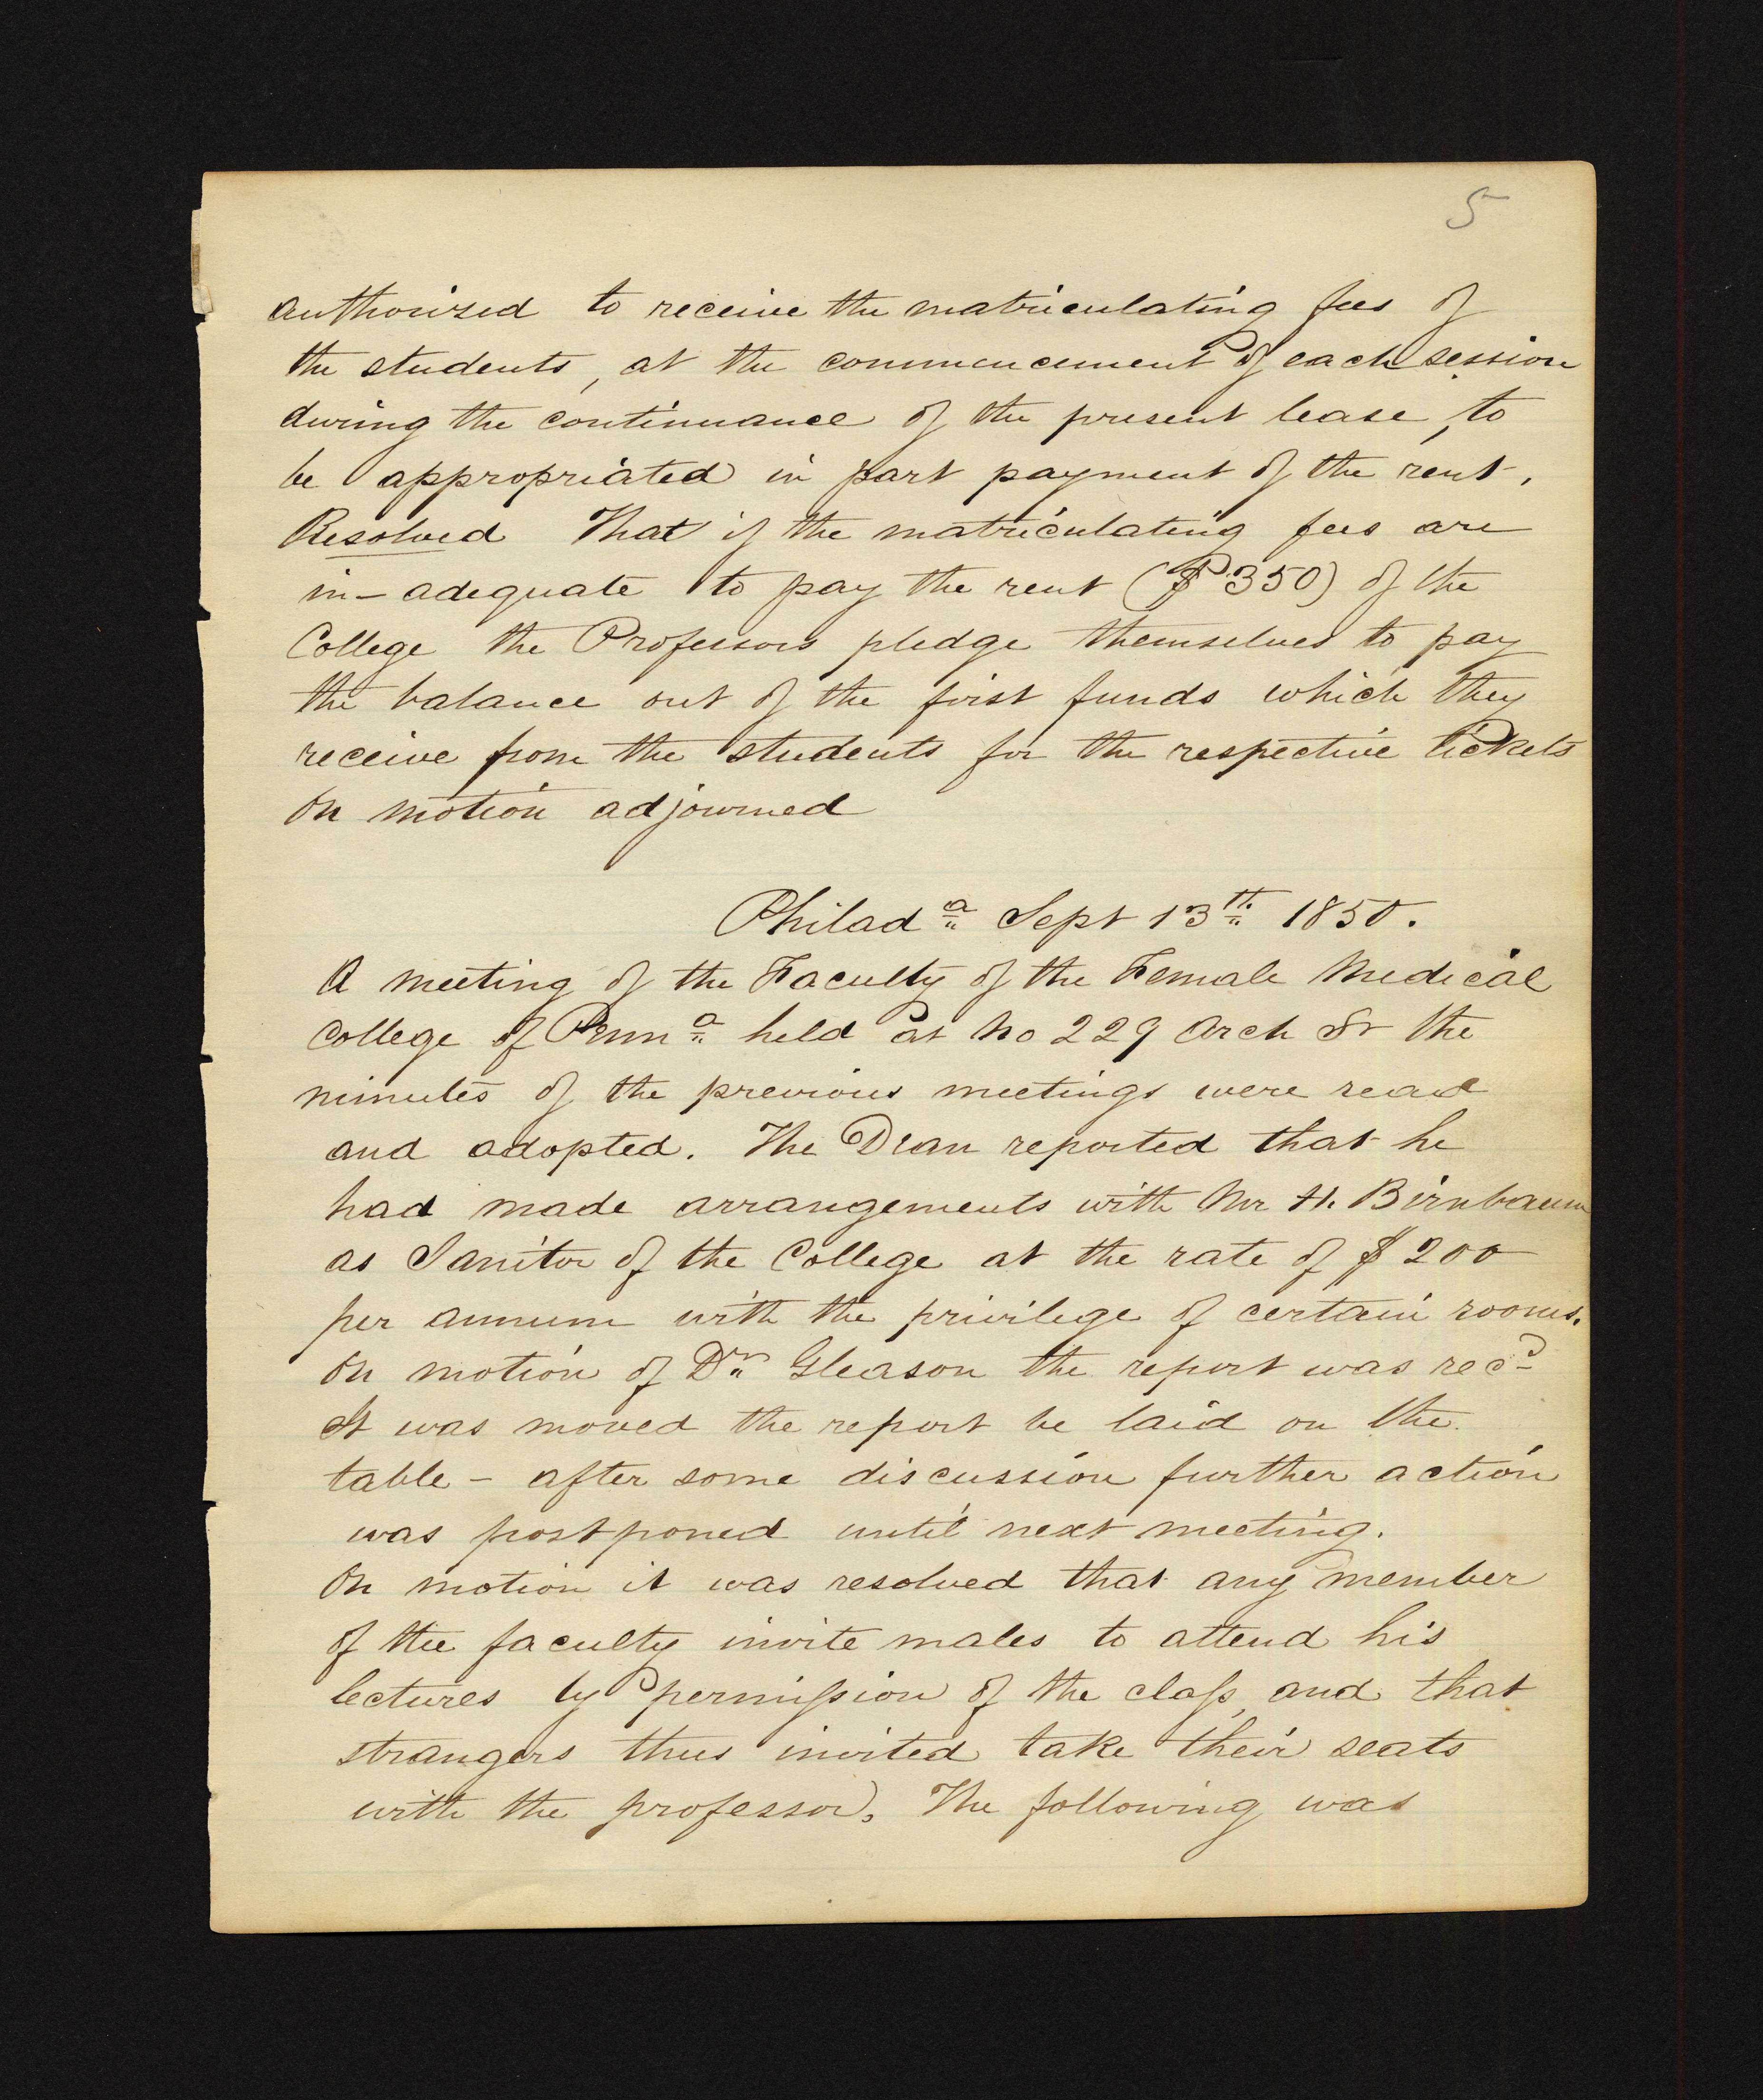 5
authorized to receive the matriculating fees of
the students, at the commencement of each session
during the continuance of the present lease, to
be appropriated in part payment of the rent.
Resolved That if the matriculating fees are
in-adequate to pay the rent ($350) of the
College the Professors pledge themselves to pay
the balance out of the first funds which they
receive from the students for the respective tickets
On motion adjourned
Philada Sept 13th 1850.
A meeting of the Faculty of the Female Medical
College of Penna held at No 229 Arch St the
minutes of the previous meetings were read
and adopted. The Dean reported that he
had made arrangements with Mr H. Birnbaum
as Janitor of the College at the rate of $200
per annum with the privilege of certain rooms.
On motion of Dr Gleason the report was recd
It was moved the report be laid on the
table - after some discussion further action
was postponed until next meeting.
On motion it was resolved that any member
of the faculty invite males to attend his
lectures by permission of the class, and that
strangers thus invited take their seats
with the professor. The following was